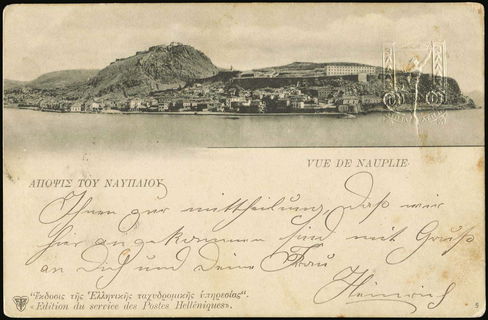 VUE DE NAUPLIE
ΑΠΟΨΙΣ ΤΟΥ ΝΑΥΠΛΙΟΥ
Ihnen zur mittheilung daß wir
hier angekommen sind mit Gruß
an Dich und Deine Frau
Heinrich
"Ἔκδοσις τῆς Ἑλληνικῆς ταχυδρομικῆς ὑπηρεσίας".
«Edition du service des Postes Helléniques».
5